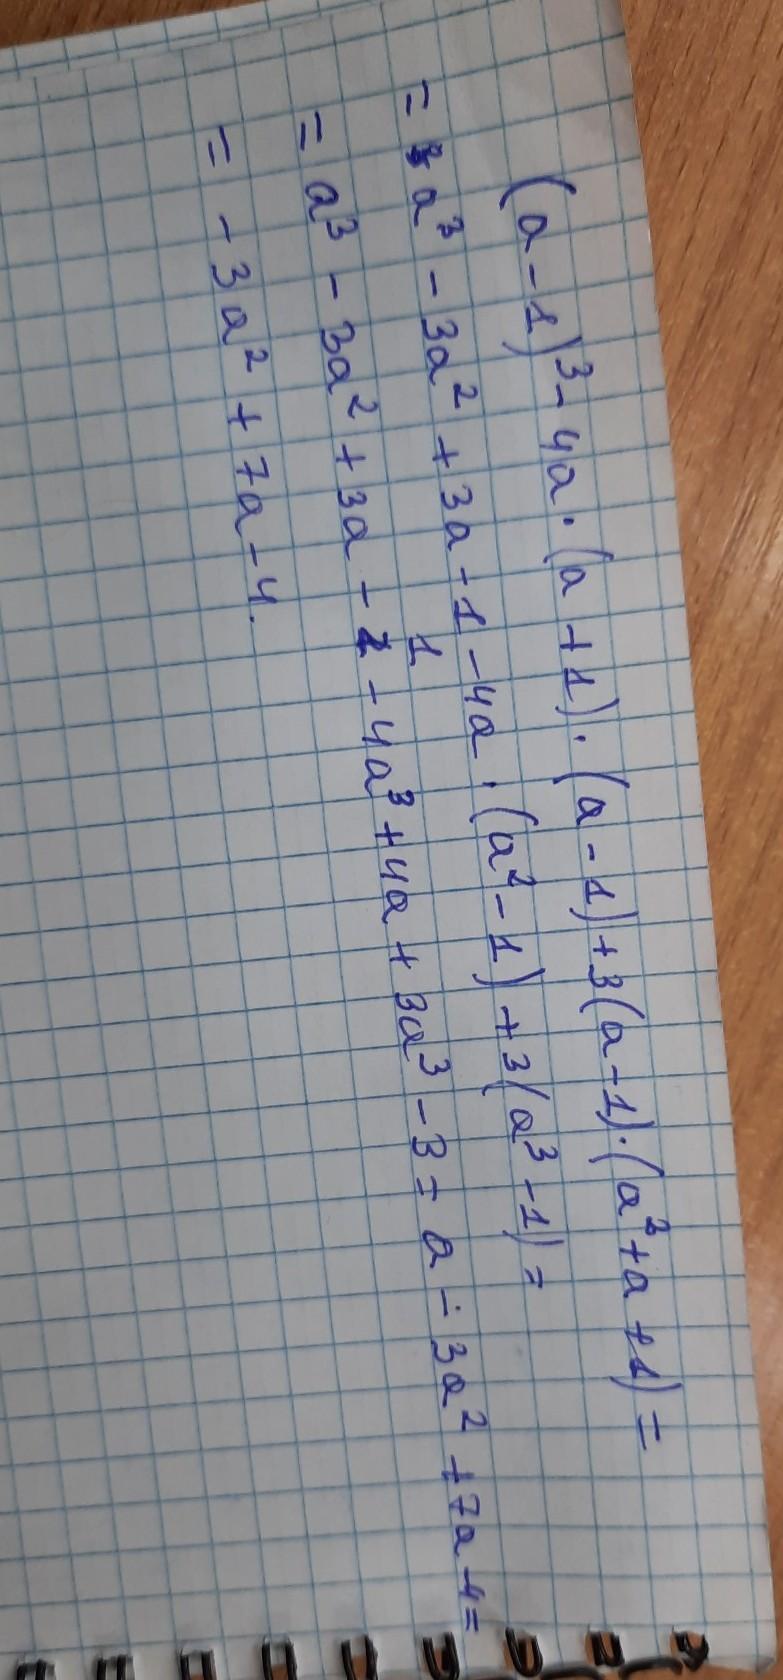 (a-1)³-4a·(a+1)·(a-1)+3(a-1)·(a²+a+1)=
=a³-3a²+3a-1-4a·(a²-1)+3(a³-1)=
=a³-3a²+3a-1-4a³+4a+3a³-3=a-3a²+7a-4=
=-3a²+7a-4.